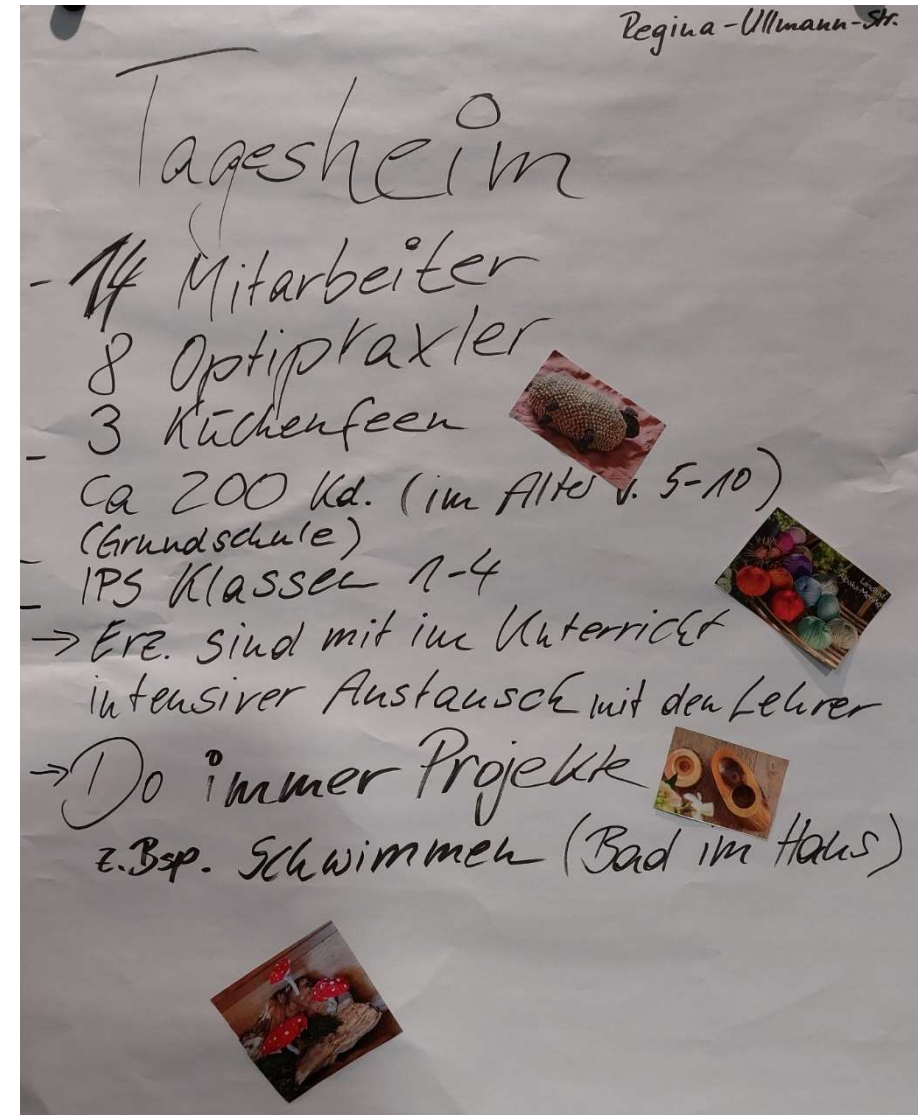 Regina-Ullmann-Str.
Tagesheim
- 14 Mitarbeiter
8 Optipraxler
- 3 Küchenfeen
ca 200 Kd. (im Alter v. 5-10)
(Grundschule)
- IPS Klassen 1-4
→ Erz. sind mit im Unterricht
intensiver Austausch mit den Lehrer
→ Do immer Projekte
z.Bsp. Schwimmen (Bad im Haus)